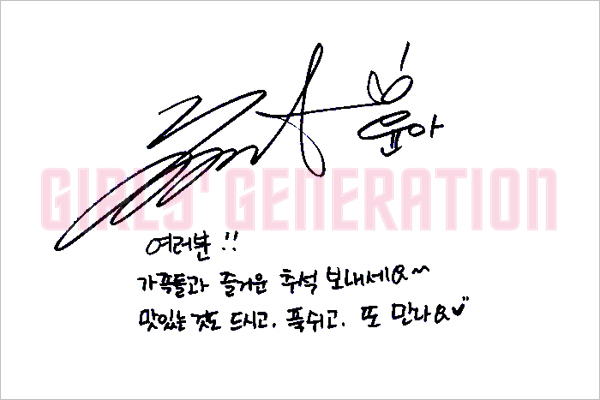 윤아
GIRLS' GENERATION
여러분 !!
가족들과 즐거운 추석 보내세요~
맛있는 것도 드시고, 푹쉬고, 또 만나요♥